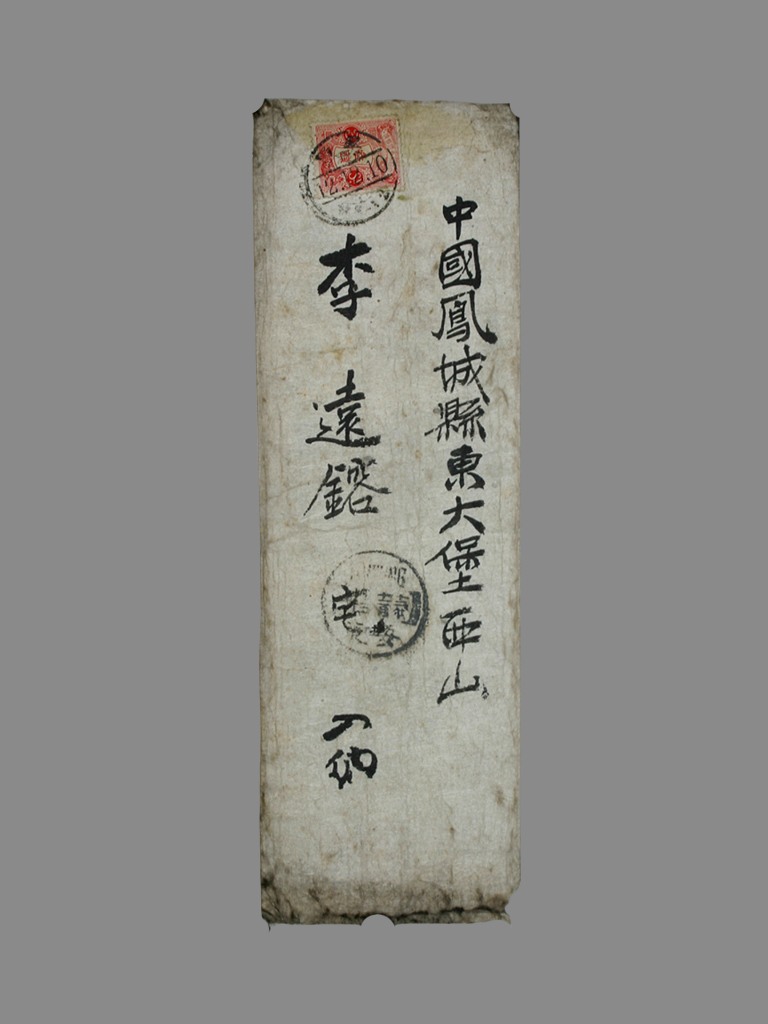 中國鳳城縣東大堡西山
李遠鎔 宅 入納
12.10